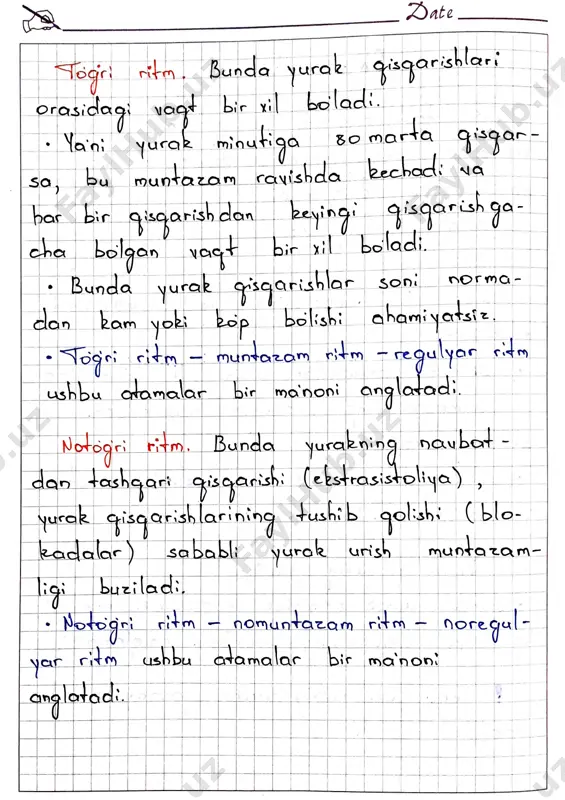 Date
To'g'ri ritm. Bunda yurak qisqarishlari
orasidagi vaqt bir xil bo'ladi.
• Ya'ni yurak minutiga 80 marta qisqar-
sa, bu muntazam ravishda kechadi va
har bir qisqarishdan keyingi qisqarishga-
cha bo'lgan vaqt bir xil bo'ladi.
• Bunda yurak qisqarishlar soni norma-
dan kam yoki ko'p bo'lishi ahamiyatsiz.
• To'g'ri ritm – muntazam ritm – regulyar ritm
ushbu atamalar bir ma'noni anglatadi.
Noto'g'ri ritm. Bunda yurakning navbat-
dan tashqari qisqarishi (ekstrasistoliya),
yurak qisqarishlarining tushib qolishi (blo-
kadalar) sababli yurak urish muntazam-
ligi buziladi.
• Noto'g'ri ritm – nomuntazam ritm – noregul-
yar ritm ushbu atamalar bir ma'noni
anglatadi.
FaylHub.uz
FaylHub.uz
FaylHub.uz